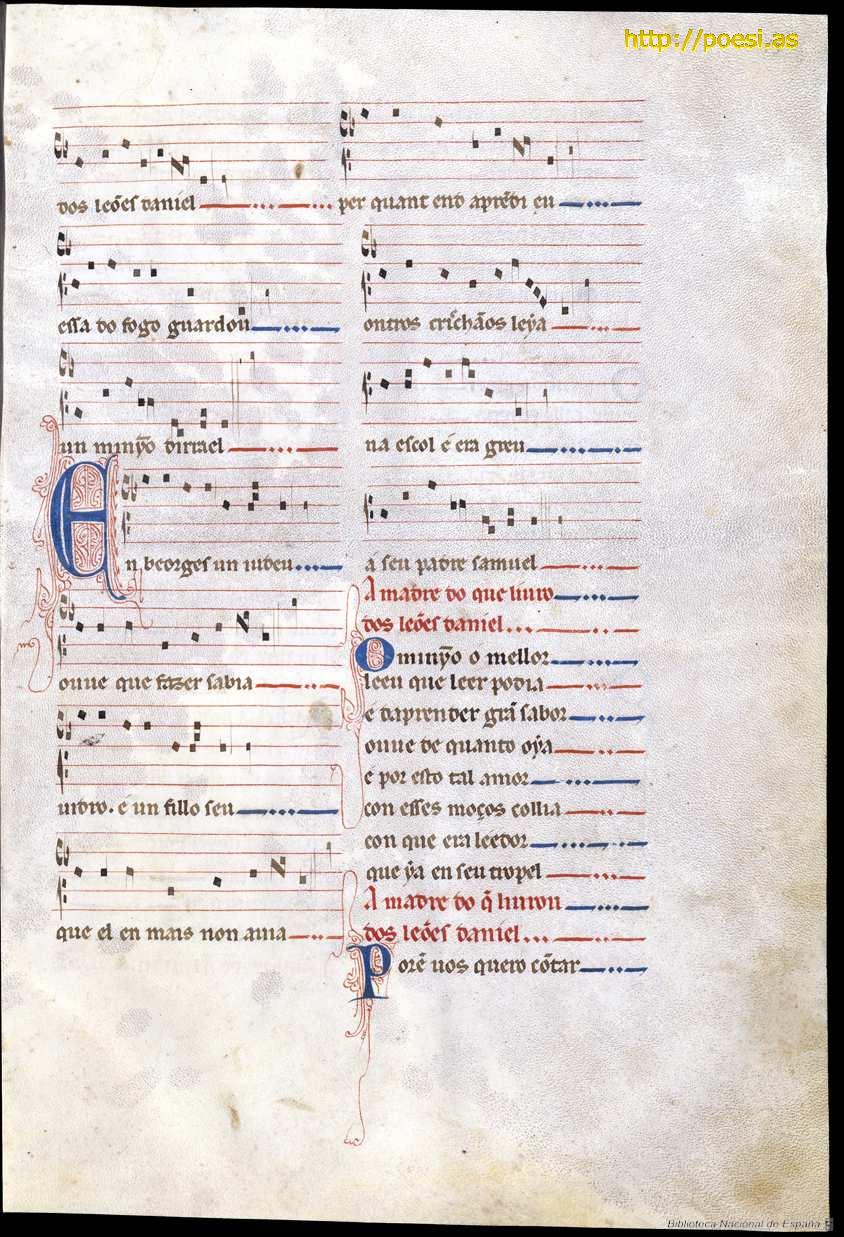 http://poesi.as
dos leões daniel
essa do fogo guardou
un minỹo dirrael
En beorges un iudeu
ouue que fazer sabia
uidro. é un fillo seu
que el en mais non auia
per quant end aprẽdi eu
ontros crischãos leýa
na escol é era greu
a seu padre samuel
A madre do que liuro
dos leões daniel
O minỹo o mellor
leeu que leer podia
é daprender grã sabor
ouue de quanto oýa
é por esto tal amor
con esses moços collia
con que era leedor
que ýa en seu tropel
A madre do q̃ liurou
dos leões daniel
Porẽ uos quero cõtar
Biblioteca Nacional de España